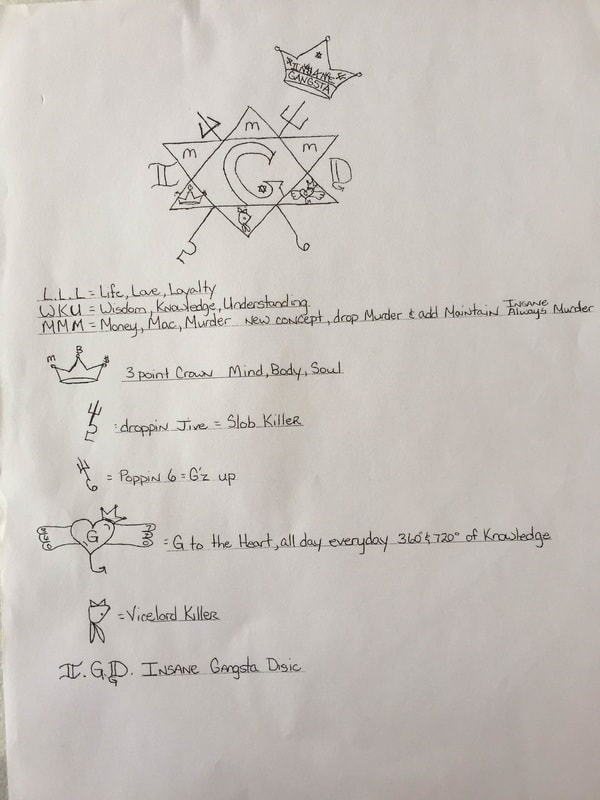 INSANE
GANGSTA
m
m
m
I
G
D
L.L.L = Life, Love, Loyalty
WKU = Wisdom, Knowledge, Understanding.
MMM = Money, Mac, Murder New concept, drop Murder & add Maintain Insane Always Murder
m B $
3 point Crown Mind, Body, Soul
:droppin Jive = Slob Killer
= Poppin 6 = G'z up
G
= G to the Heart, all day everyday 360° & 720° of Knowledge
= Vicelord Killer
I. G. D. Insane Gangsta Disic